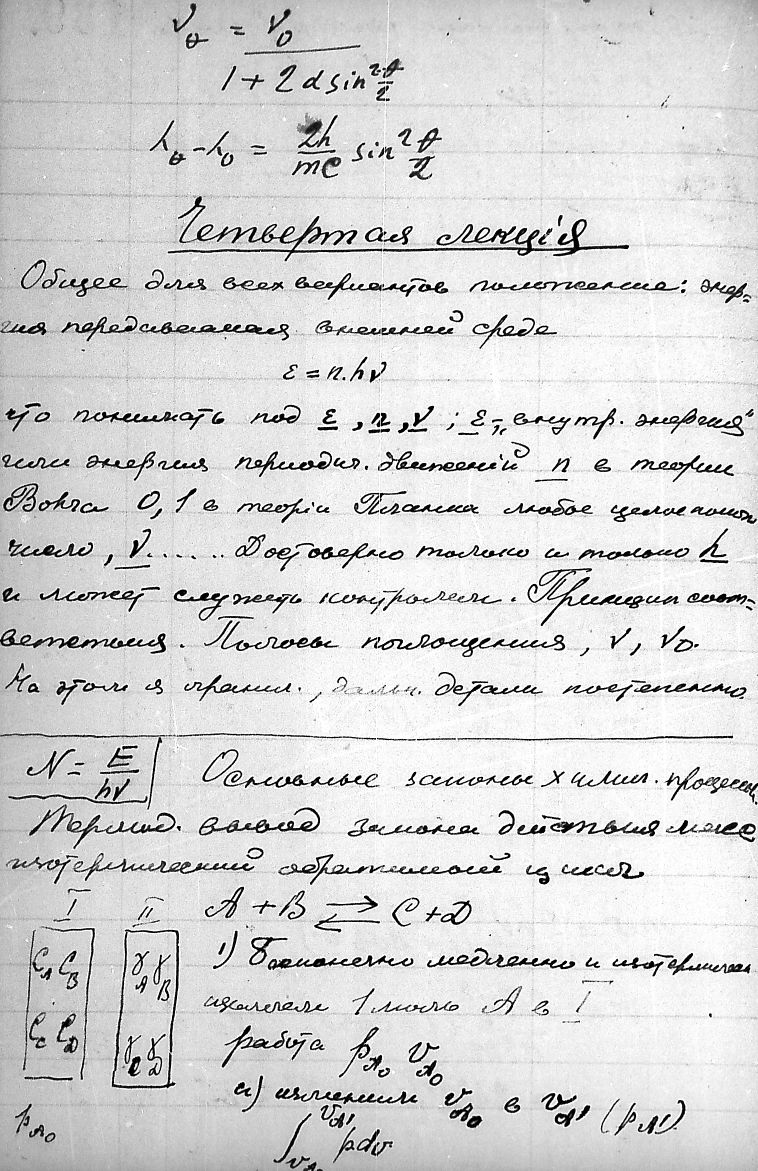 ν_θ = ν_0 / (1 + 2α sin² θ/2)
λ_θ - λ_0 = 2h/mc sin² θ/2
Четвертая лекція
Общее для всех вариантов положение: энер=
гия передаваемая внешней среде
ε = n.hν
что понимать под ε, n, ν; ε - „внутр. энергия"
или энергия периодич. движеній n в теории
Бора 0, 1 в теоріи Планка любое целое
число, ν...... Достоверно только и только h
и может служить контролем. Принцип соот=
ветствия. Полосы поглощения, ν, ν_0.
На этом я огранич., дальн. детали постепенно.
N = E/hν Основные законы химич. процессов.
Термод. вывод закона действия масс
изотермический обратимый цикл
I II A + B ⇄ C + D
C_A C_B γ_A γ_B 1) Бесконечно медленно и изотермически
C_C C_D γ_C γ_D извлечем 1 моль A в I
работа p_A₀ v_A₀
a) изменили v_A₀ в v_A' (p_A').
p_A₀ ∫_{v_A₀}^{v_A'} pdv